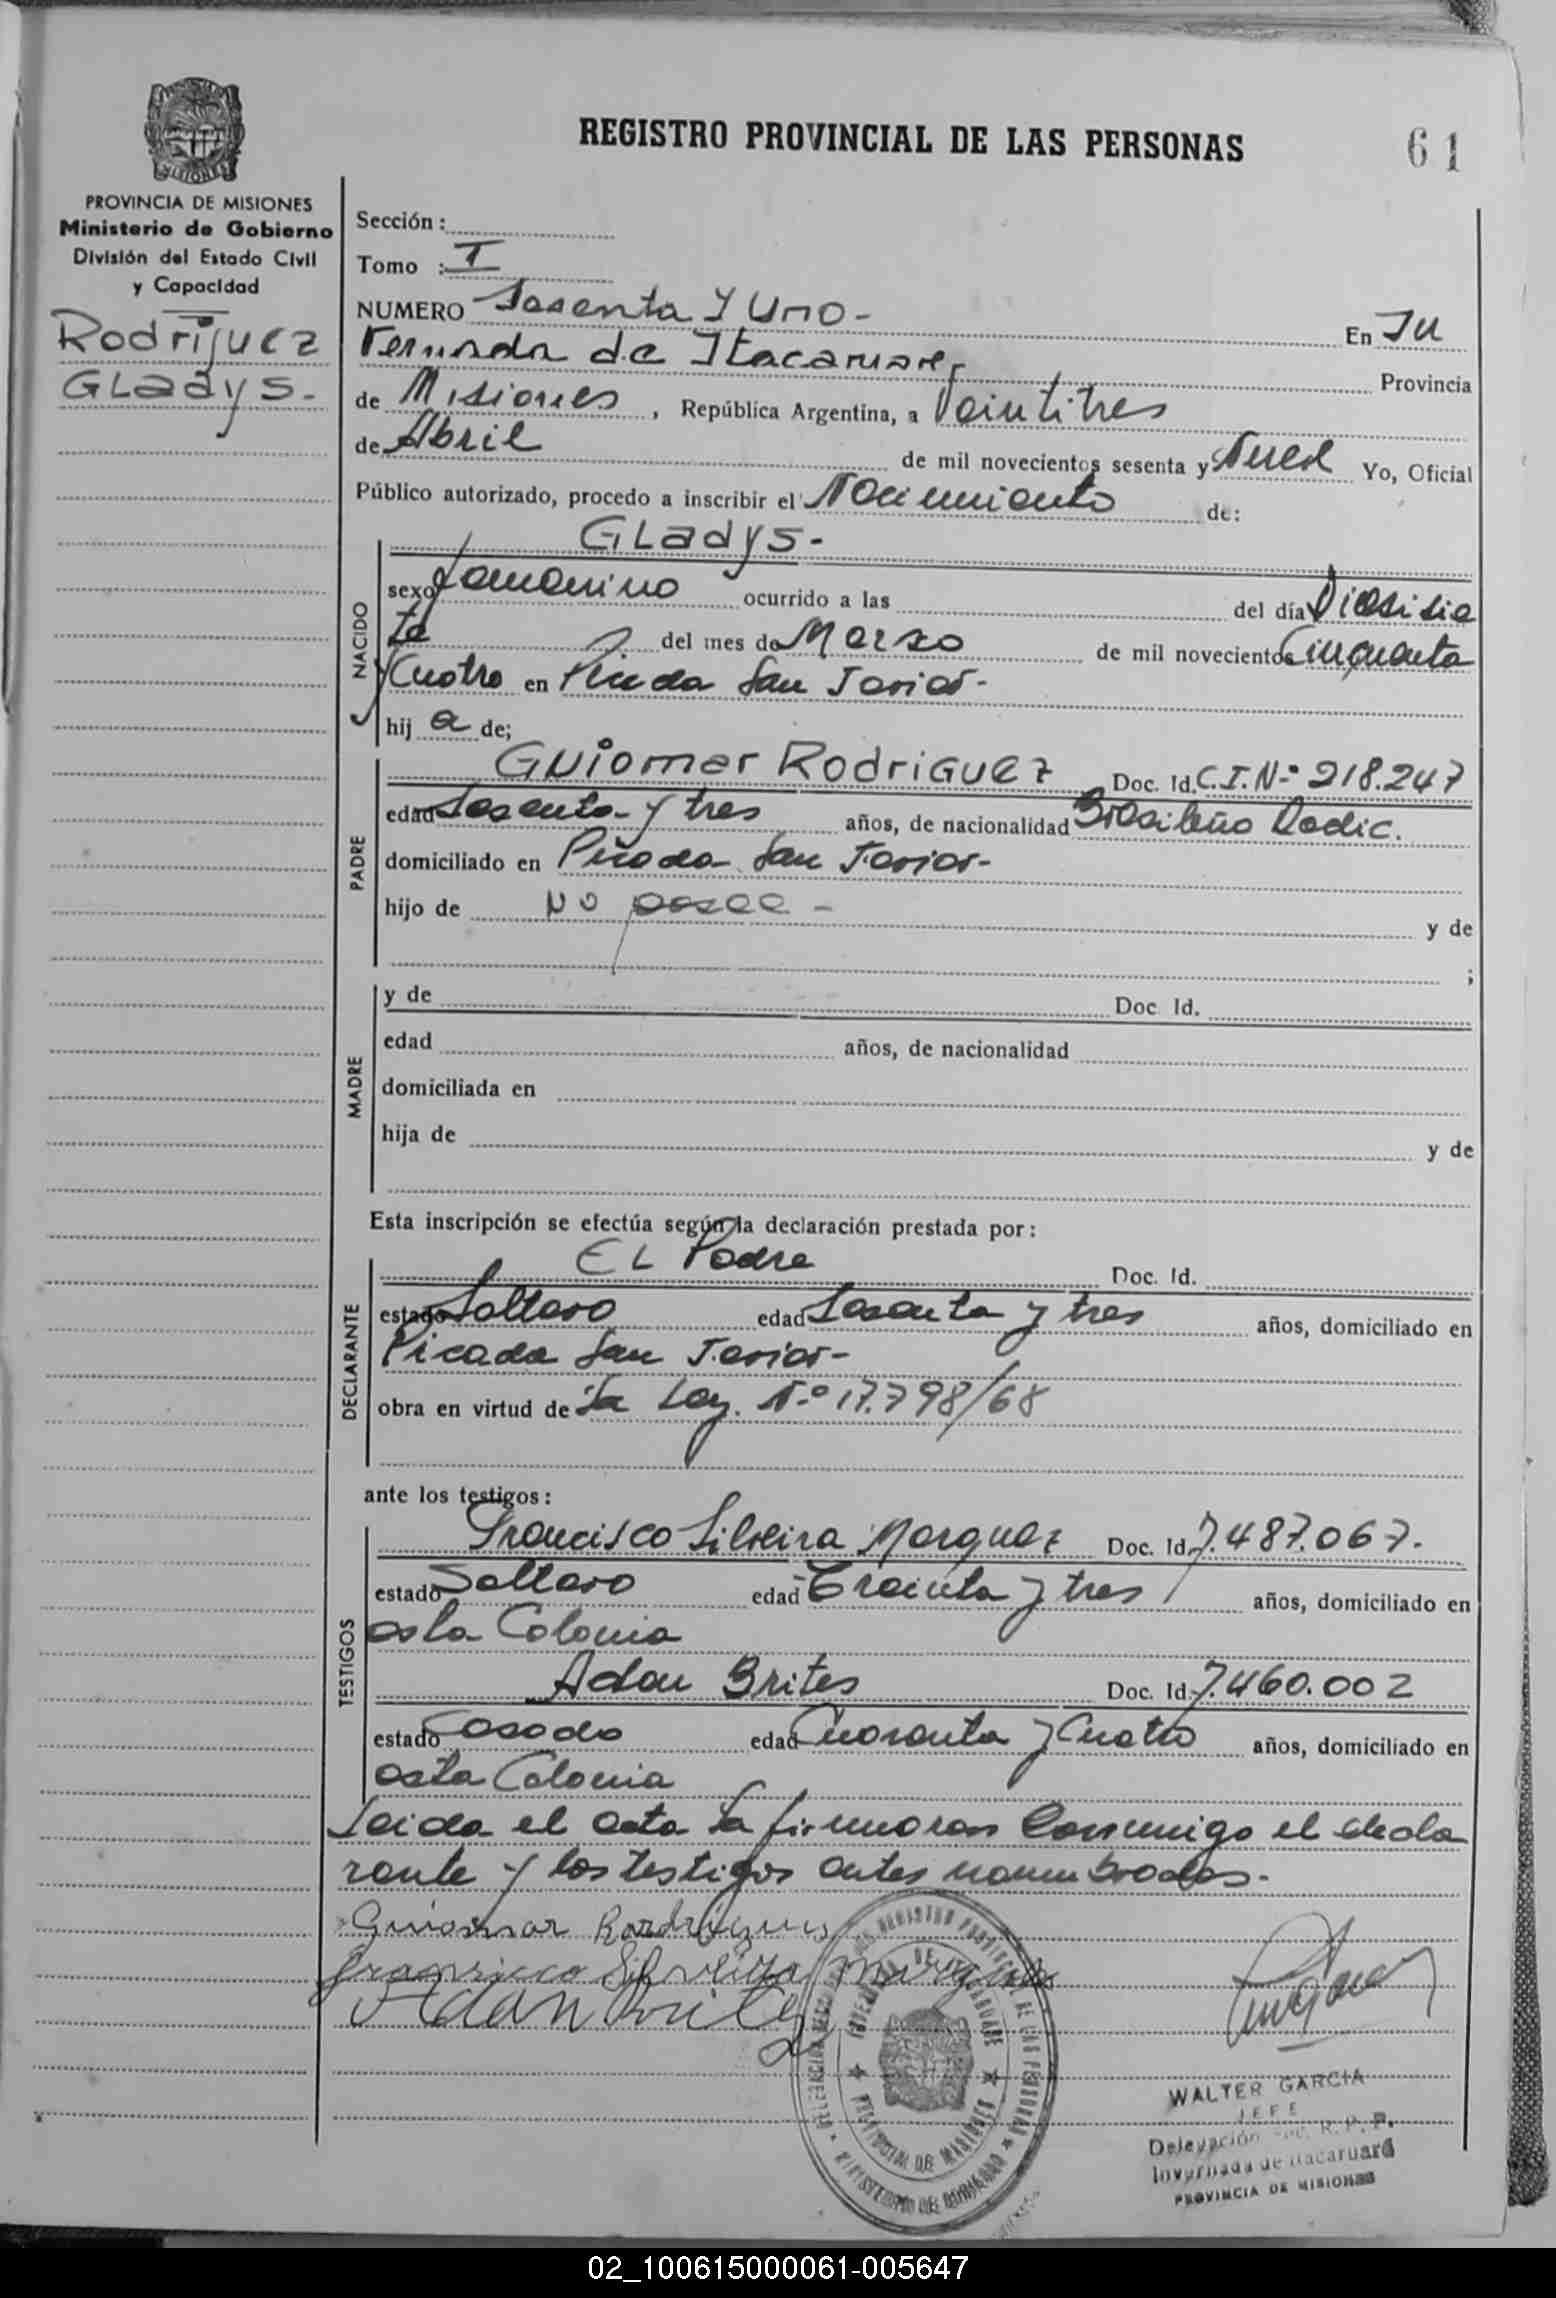 REGISTRO PROVINCIAL DE LAS PERSONAS
61
MISIONES
PROVINCIA DE MISIONES
Ministerio de Gobierno
División del Estado Civil
y Capacidad
Rodriguez
Gladys.-
Sección :
Tomo : I
NUMERO Sesenta y Uno-
En In
vernada de Itacaruare, Provincia
de Misiones , República Argentina, a Veintitres
de Abril de mil novecientos sesenta y Nueve Yo, Oficial
Público autorizado, procedo a inscribir el Nacimiento de:
NACIDO
Gladys.-
sexo femenino ocurrido a las del día Diesisie
te del mes de Marzo de mil novecientos Cinquenta
y Cuatro en Picada San Javier-
hij a de;
PADRE
Guiomar Rodriguez Doc. Id. C.I.Nº 218.247
edad Sesenta y tres años, de nacionalidad Brasileño Radic.
domiciliado en Picada San Javier-
hijo de no posee - y de
;
MADRE
y de Doc Id.
edad años, de nacionalidad
domiciliada en
hija de y de
Esta inscripción se efectúa según la declaración prestada por :
DECLARANTE
El Padre Doc. Id.
estado Soltero edad Sesenta y tres años, domiciliado en
Picada San Javier-
obra en virtud de la Ley. Nº 17.798/68
ante los testigos :
TESTIGOS
Francisco Silveira Marquez Doc. Id. 7.487.067.
estado Soltero edad Treinta y tres años, domiciliado en
esta Colonia
Adan Brites Doc. Id. 7.460.002
estado Casado edad Cuarenta y Cuatro años, domiciliado en
esta Colonia
Leida el acta la firmaron Conmigo el decla
rante y los testigos antes nombrados.-
Guiomar Rordrigues
Francisco Silveira Marques
Adan Brites
REGISTRO PROVINCIAL DE LAS PERSONAS
PROVINCIA DE MISIONES
MINISTERIO DE GOBIERNO
WALTER GARCIA
JEFE
Delegación R. P. P.
Invernada de Itacaruaré
PROVINCIA DE MISIONES
02_100615000061-005647